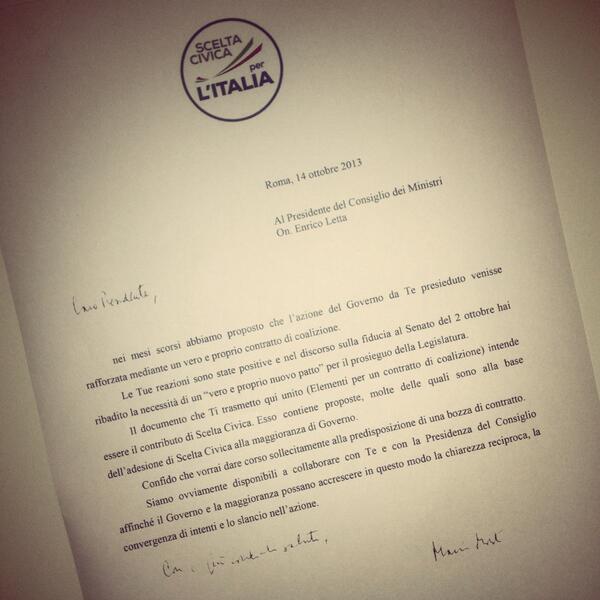 SCELTA
CIVICA
per
L'ITALIA
Roma, 14 ottobre 2013
Al Presidente del Consiglio dei Ministri
On. Enrico Letta
Caro Presidente,
nei mesi scorsi abbiamo proposto che l'azione del Governo da Te presieduto venisse
rafforzata mediante un vero e proprio contratto di coalizione.
Le Tue reazioni sono state positive e nel discorso sulla fiducia al Senato del 2 ottobre hai
ribadito la necessità di un "vero e proprio nuovo patto" per il prosieguo della Legislatura.
Il documento che Ti trasmetto qui unito (Elementi per un contratto di coalizione) intende
essere il contributo di Scelta Civica. Esso contiene proposte, molte delle quali sono alla base
dell'adesione di Scelta Civica alla maggioranza di Governo.
Confido che vorrai dare corso sollecitamente alla predisposizione di una bozza di contratto.
Siamo ovviamente disponibili a collaborare con Te e con la Presidenza del Consiglio
affinché il Governo e la maggioranza possano accrescere in questo modo la chiarezza reciproca, la
convergenza di intenti e lo slancio nell'azione.
Con i più cordiali saluti,
Mario Monti